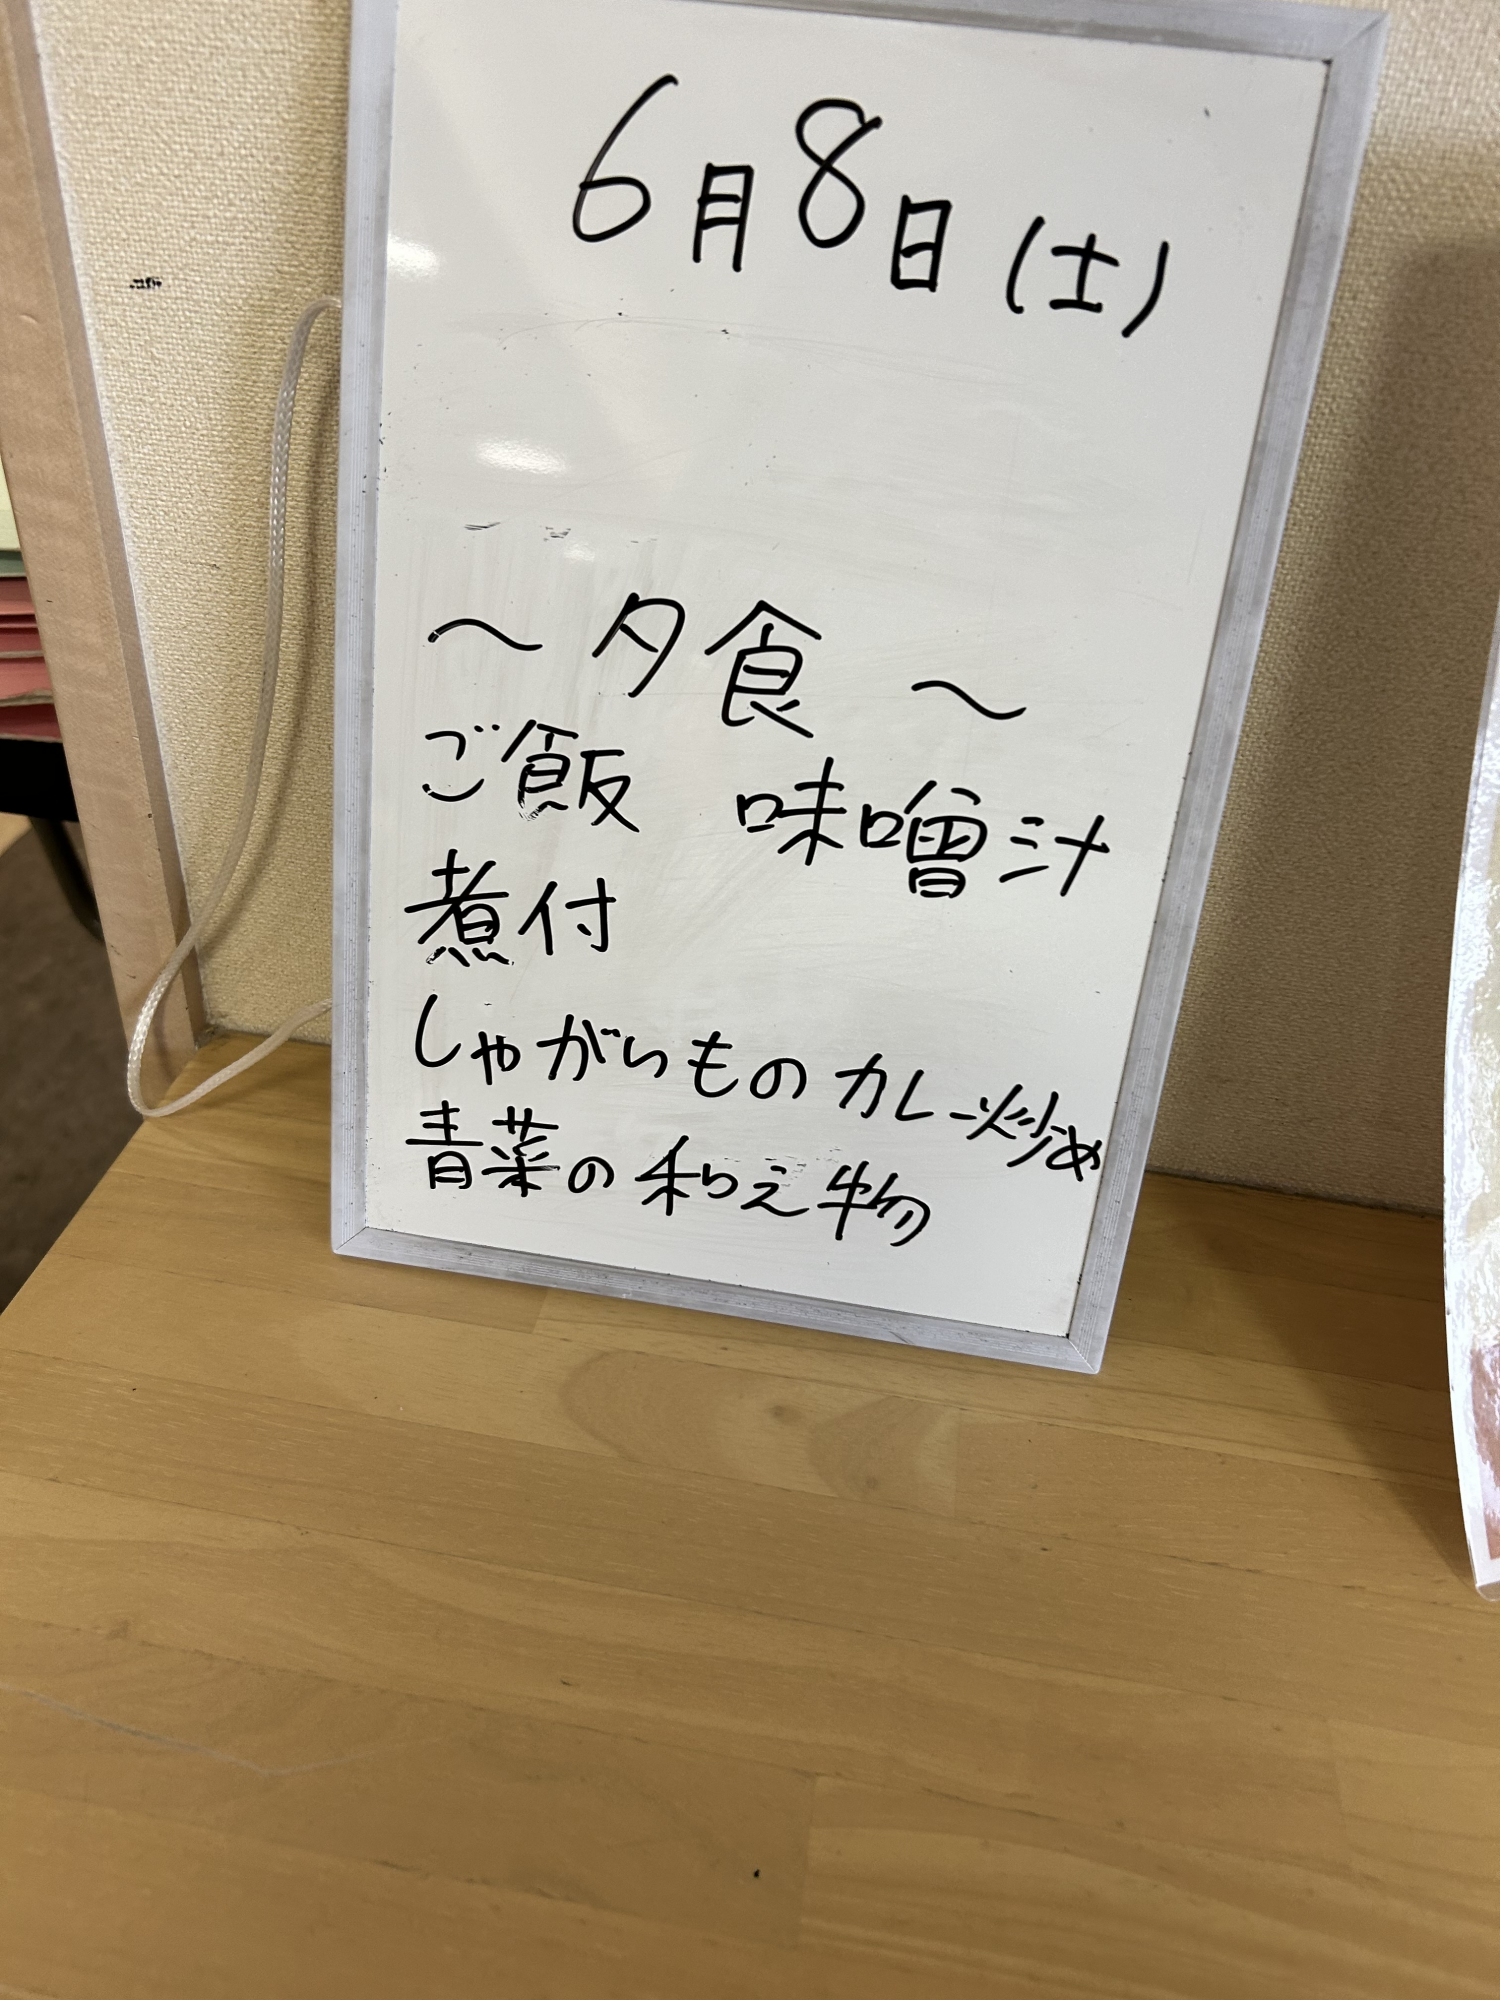 6月8日(土)
～夕食～
ご飯 味噌汁
煮付
しゃがいものカレー炒め
青菜の和え物